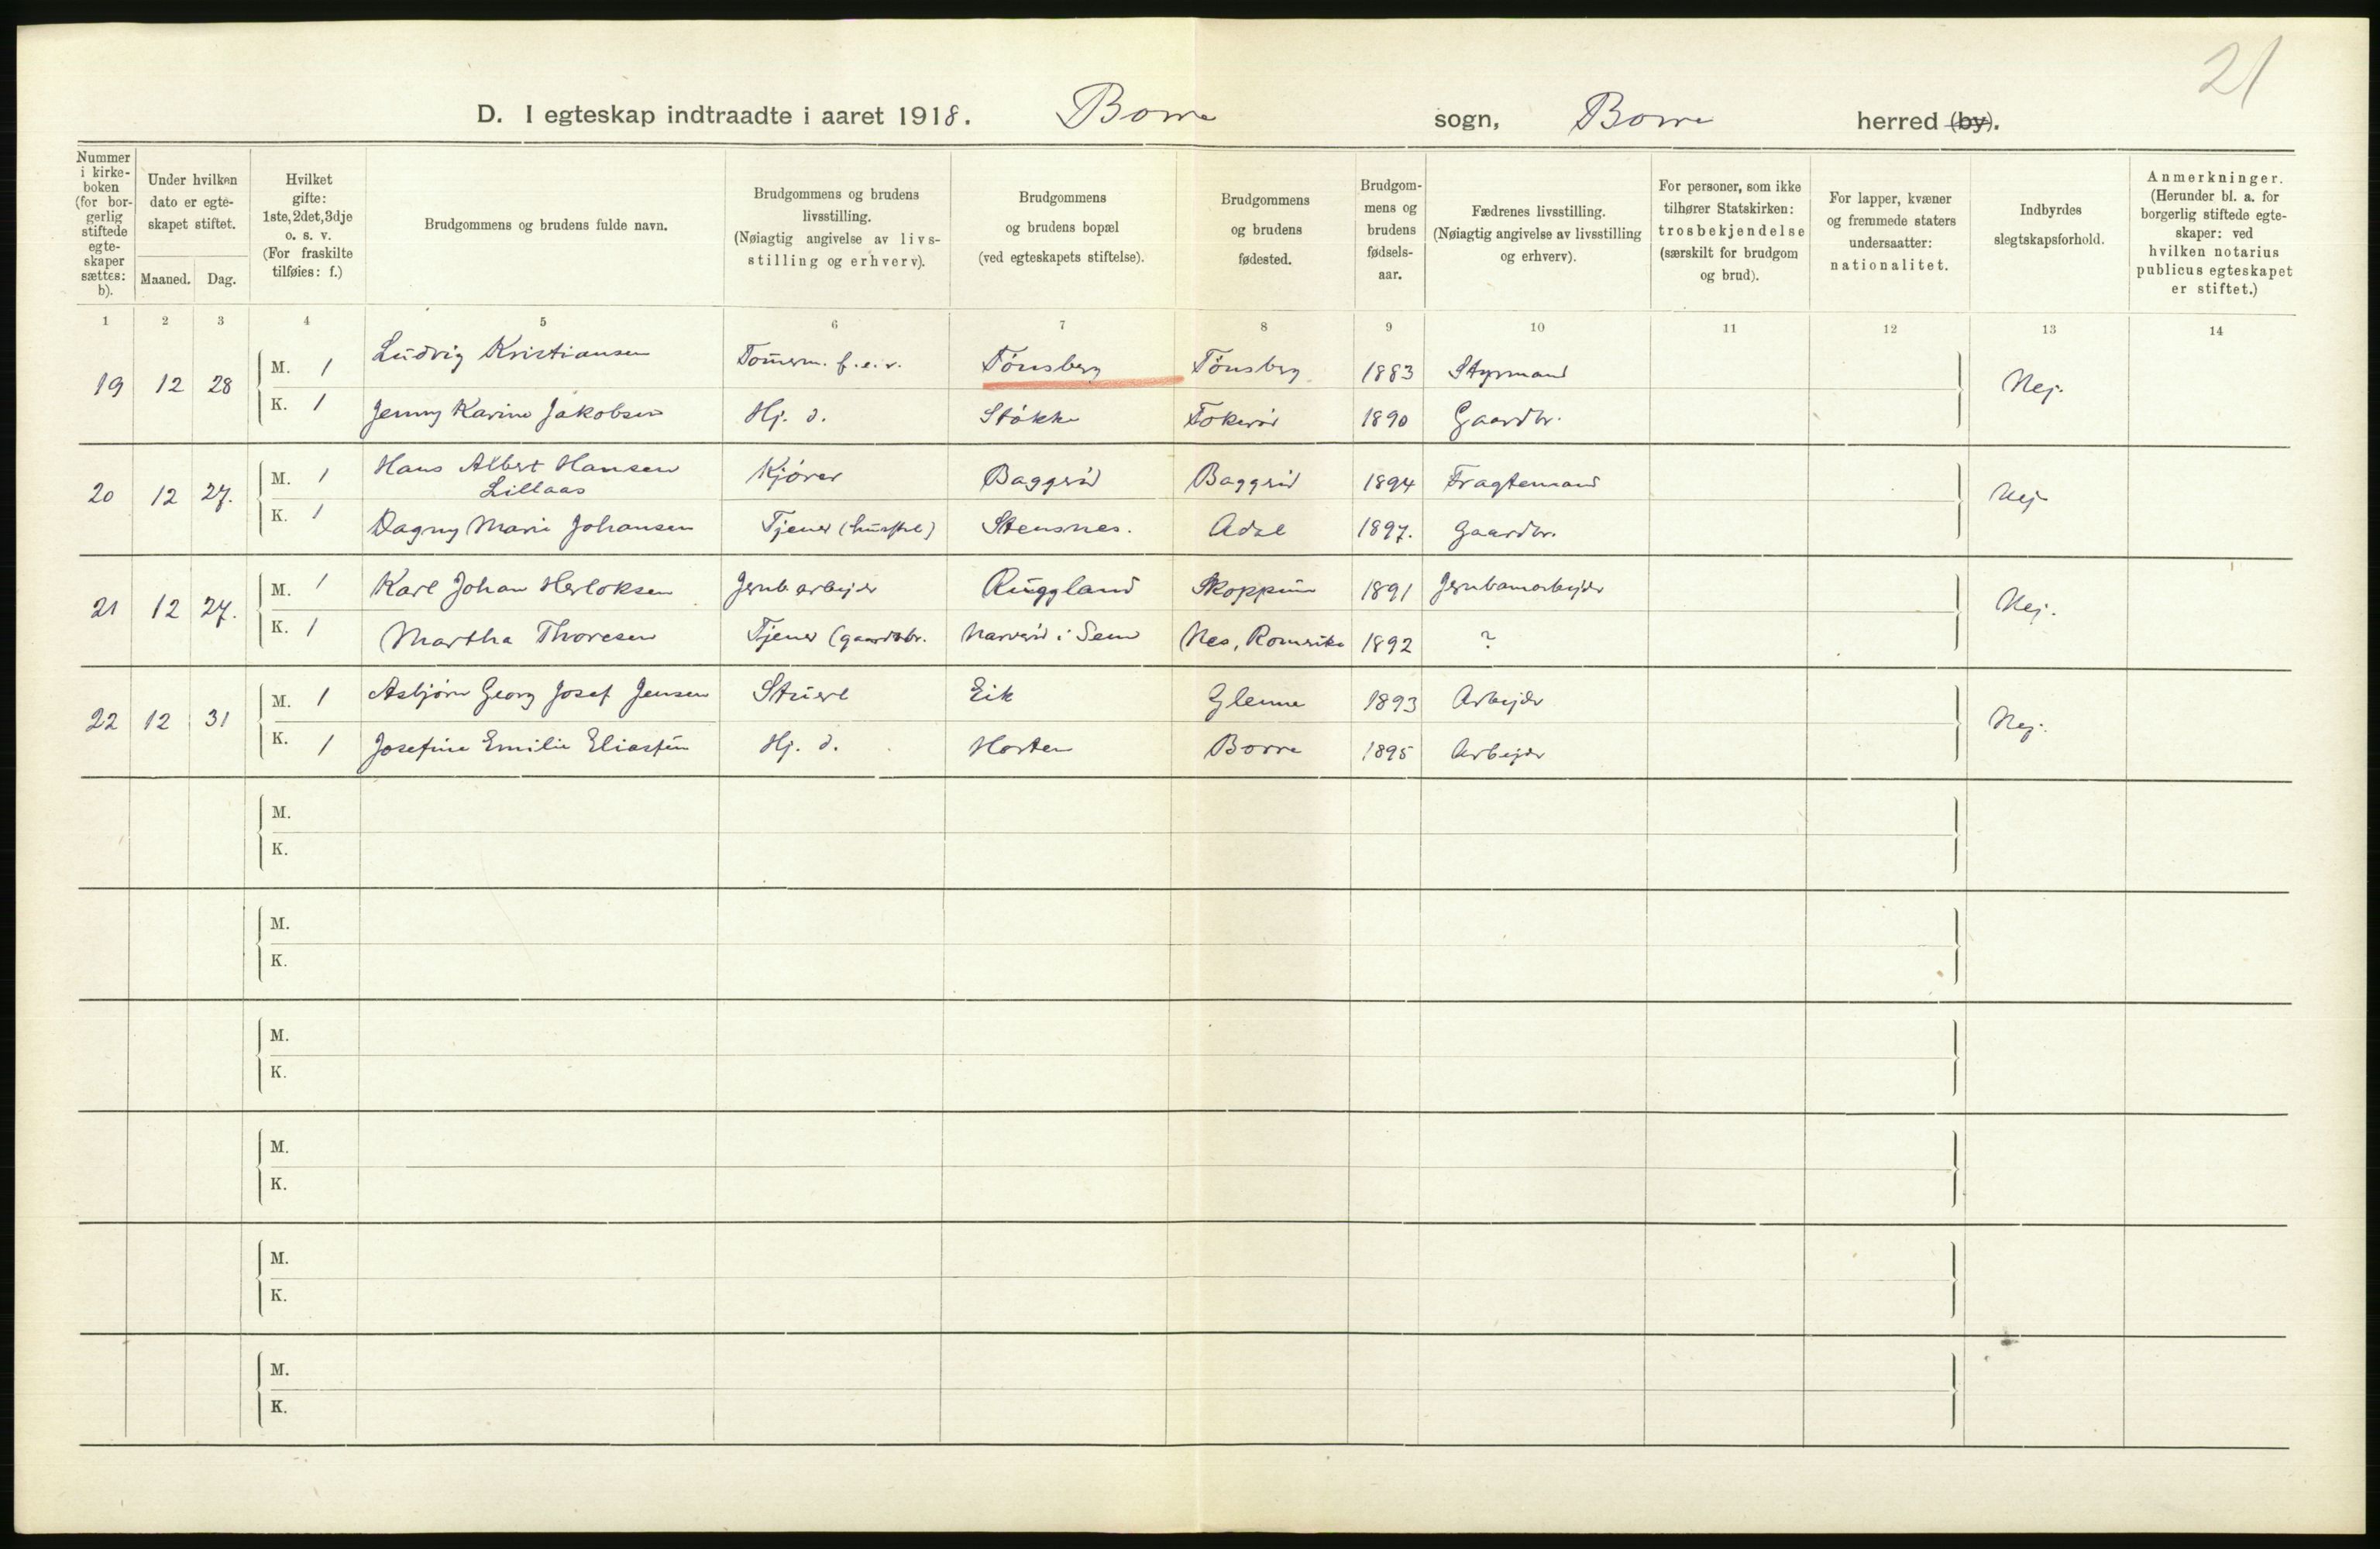 21
D. I egteskap indtraadte i aaret 1918. Borre sogn, Borre herred (by).
Nummer i kirke-boken (for bor-gerlig stiftede egte-skaper sættes: b).
Under hvilken dato er egte-skapet stiftet.
Maaned. Dag.
Hvilket gifte: 1ste, 2det, 3dje o. s. v. (For fraskilte tilføies: f.)
Brudgommens og brudens fulde navn.
Brudgommens og brudens livsstilling. (Nøiagtig angivelse av livs-stilling og erhverv).
Brudgommens og brudens bopæl (ved egteskapets stiftelse).
Brudgommens og brudens fødested.
Brudgom-mens og brudens fødsels-aar.
Fædrenes livsstilling. (Nøiagtig angivelse av livsstilling og erhverv).
For personer, som ikke tilhører Statskirken: trosbekjendelse (særskilt for brudgom og brud).
For lapper, kvæner og fremmede staters undersaatter: nationalitet.
Indbyrdes slegtskapsforhold.
Anmerkninger. (Herunder bl. a. for borgerlig stiftede egte-skaper: ved hvilken notarius publicus egteskapet er stiftet.)
1 2 3 4 5 6 7 8 9 10 11 12 13 14
19 12 28 M. 1 Ludvig Kristiansen Tømerm. f.e.r. Tønsberg Tønsberg 1883 Styrmand Nej.
K. 1 Jenny Karine Jakobsen Hj. d. Stokke Fokserød 1890 Gaardbr.
20 12 27. M. 1 Hans Albert Hansen Kjører Baggerød Baggerød 1894 Fragtemand Nej
Lillaas
K. 1 Dagny Marie Johansen Tjener (husstel) Stensnes. Adal 1897. Gaardbr.
21 12 27. M. 1 Karl Johan Herloksen Jernb arbejder Ruggland Skoppum 1891 Jernbanarbejder Nej.
K. 1 Martha Thoresen Tjener (gaardsbr. Narverød i Sem Nes, Romerike 1892 ?
22 12 31 M. 1 Asbjørn Georg Josef Jensen Stuert Eik Glenne 1893 Arbejder Nej.
K. 1 Josefine Emilie Eliassen Hj. d. Horten Borre 1895 Arbejder
M.
K.
M.
K.
M.
K.
M.
K.
M.
K.
M.
K.